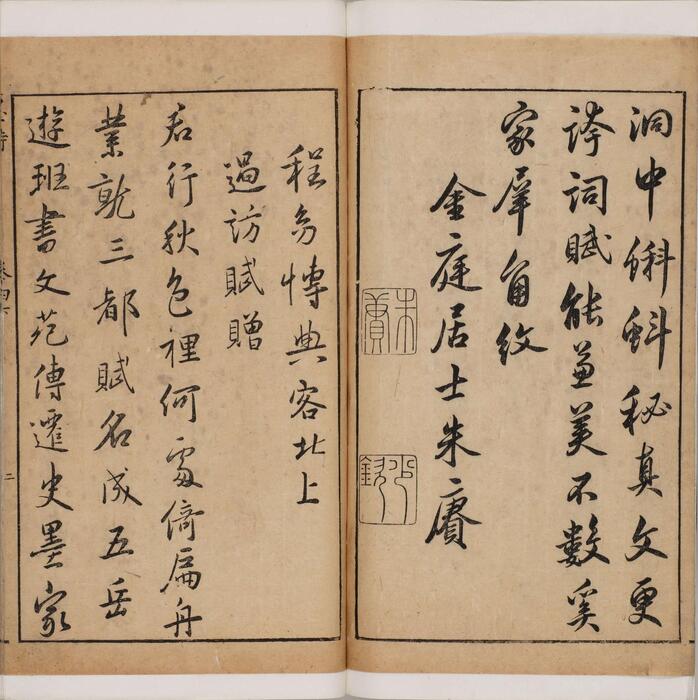 洞中蝌蚪秘真文更
誇詞賦能兼美不數奚
家犀角紋
金庭居士朱賡
朱賡
少欽
程幼博與客北上
過訪賦贈
君行秋色裡何處倚扁舟
業就三都賦名成五岳
遊班書文苑傳遷史墨家
二